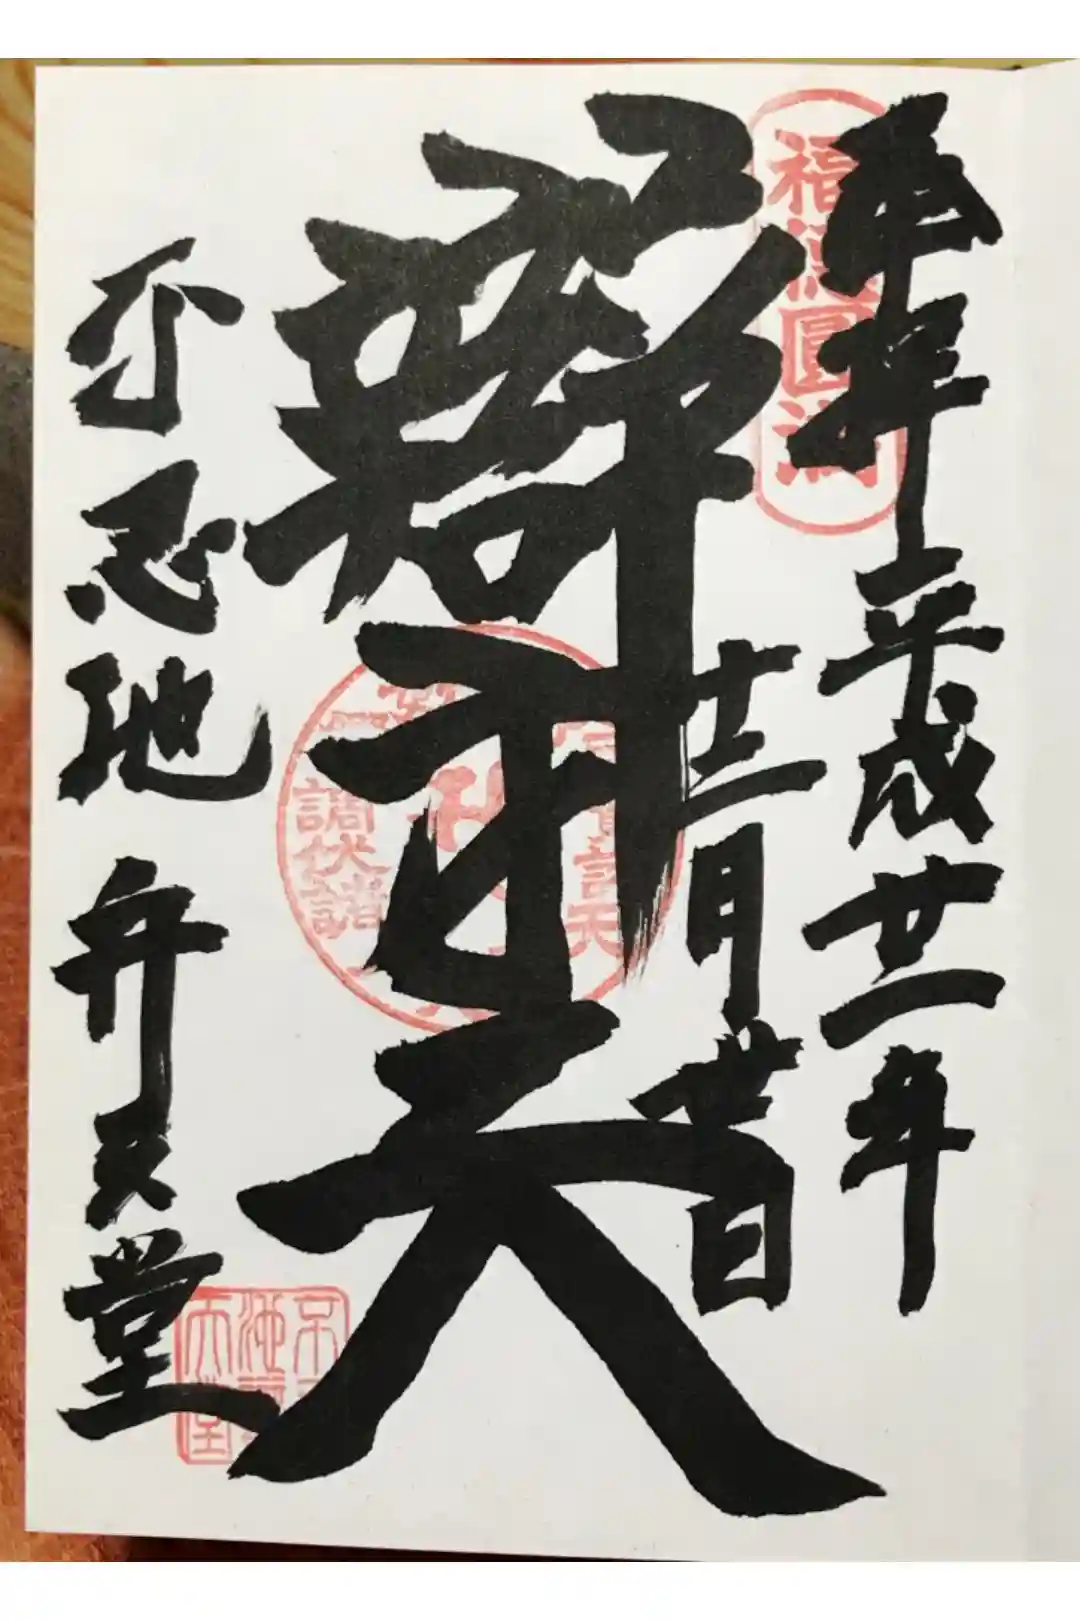 奉拝 平成廿一年
福徳圓満
十二月廿日
辨才天
調伏諸
不忍池 弁天堂